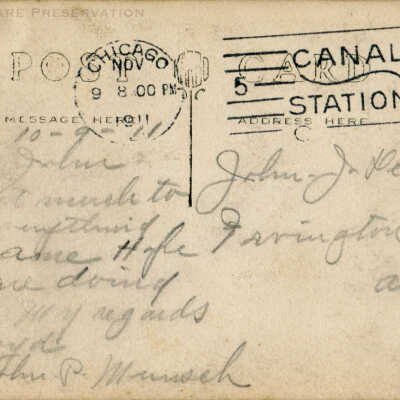 ARE PRESERVATION
POST CARD
CHICAGO
NOV
9 8.00 PM
1911
5
CANAL
STATION
C
MESSAGE HERE
ADDRESS HERE
10-9-11
John
much to
everything
same Hope
are doing
My regards
John P. Munsch
John J.
Irvington